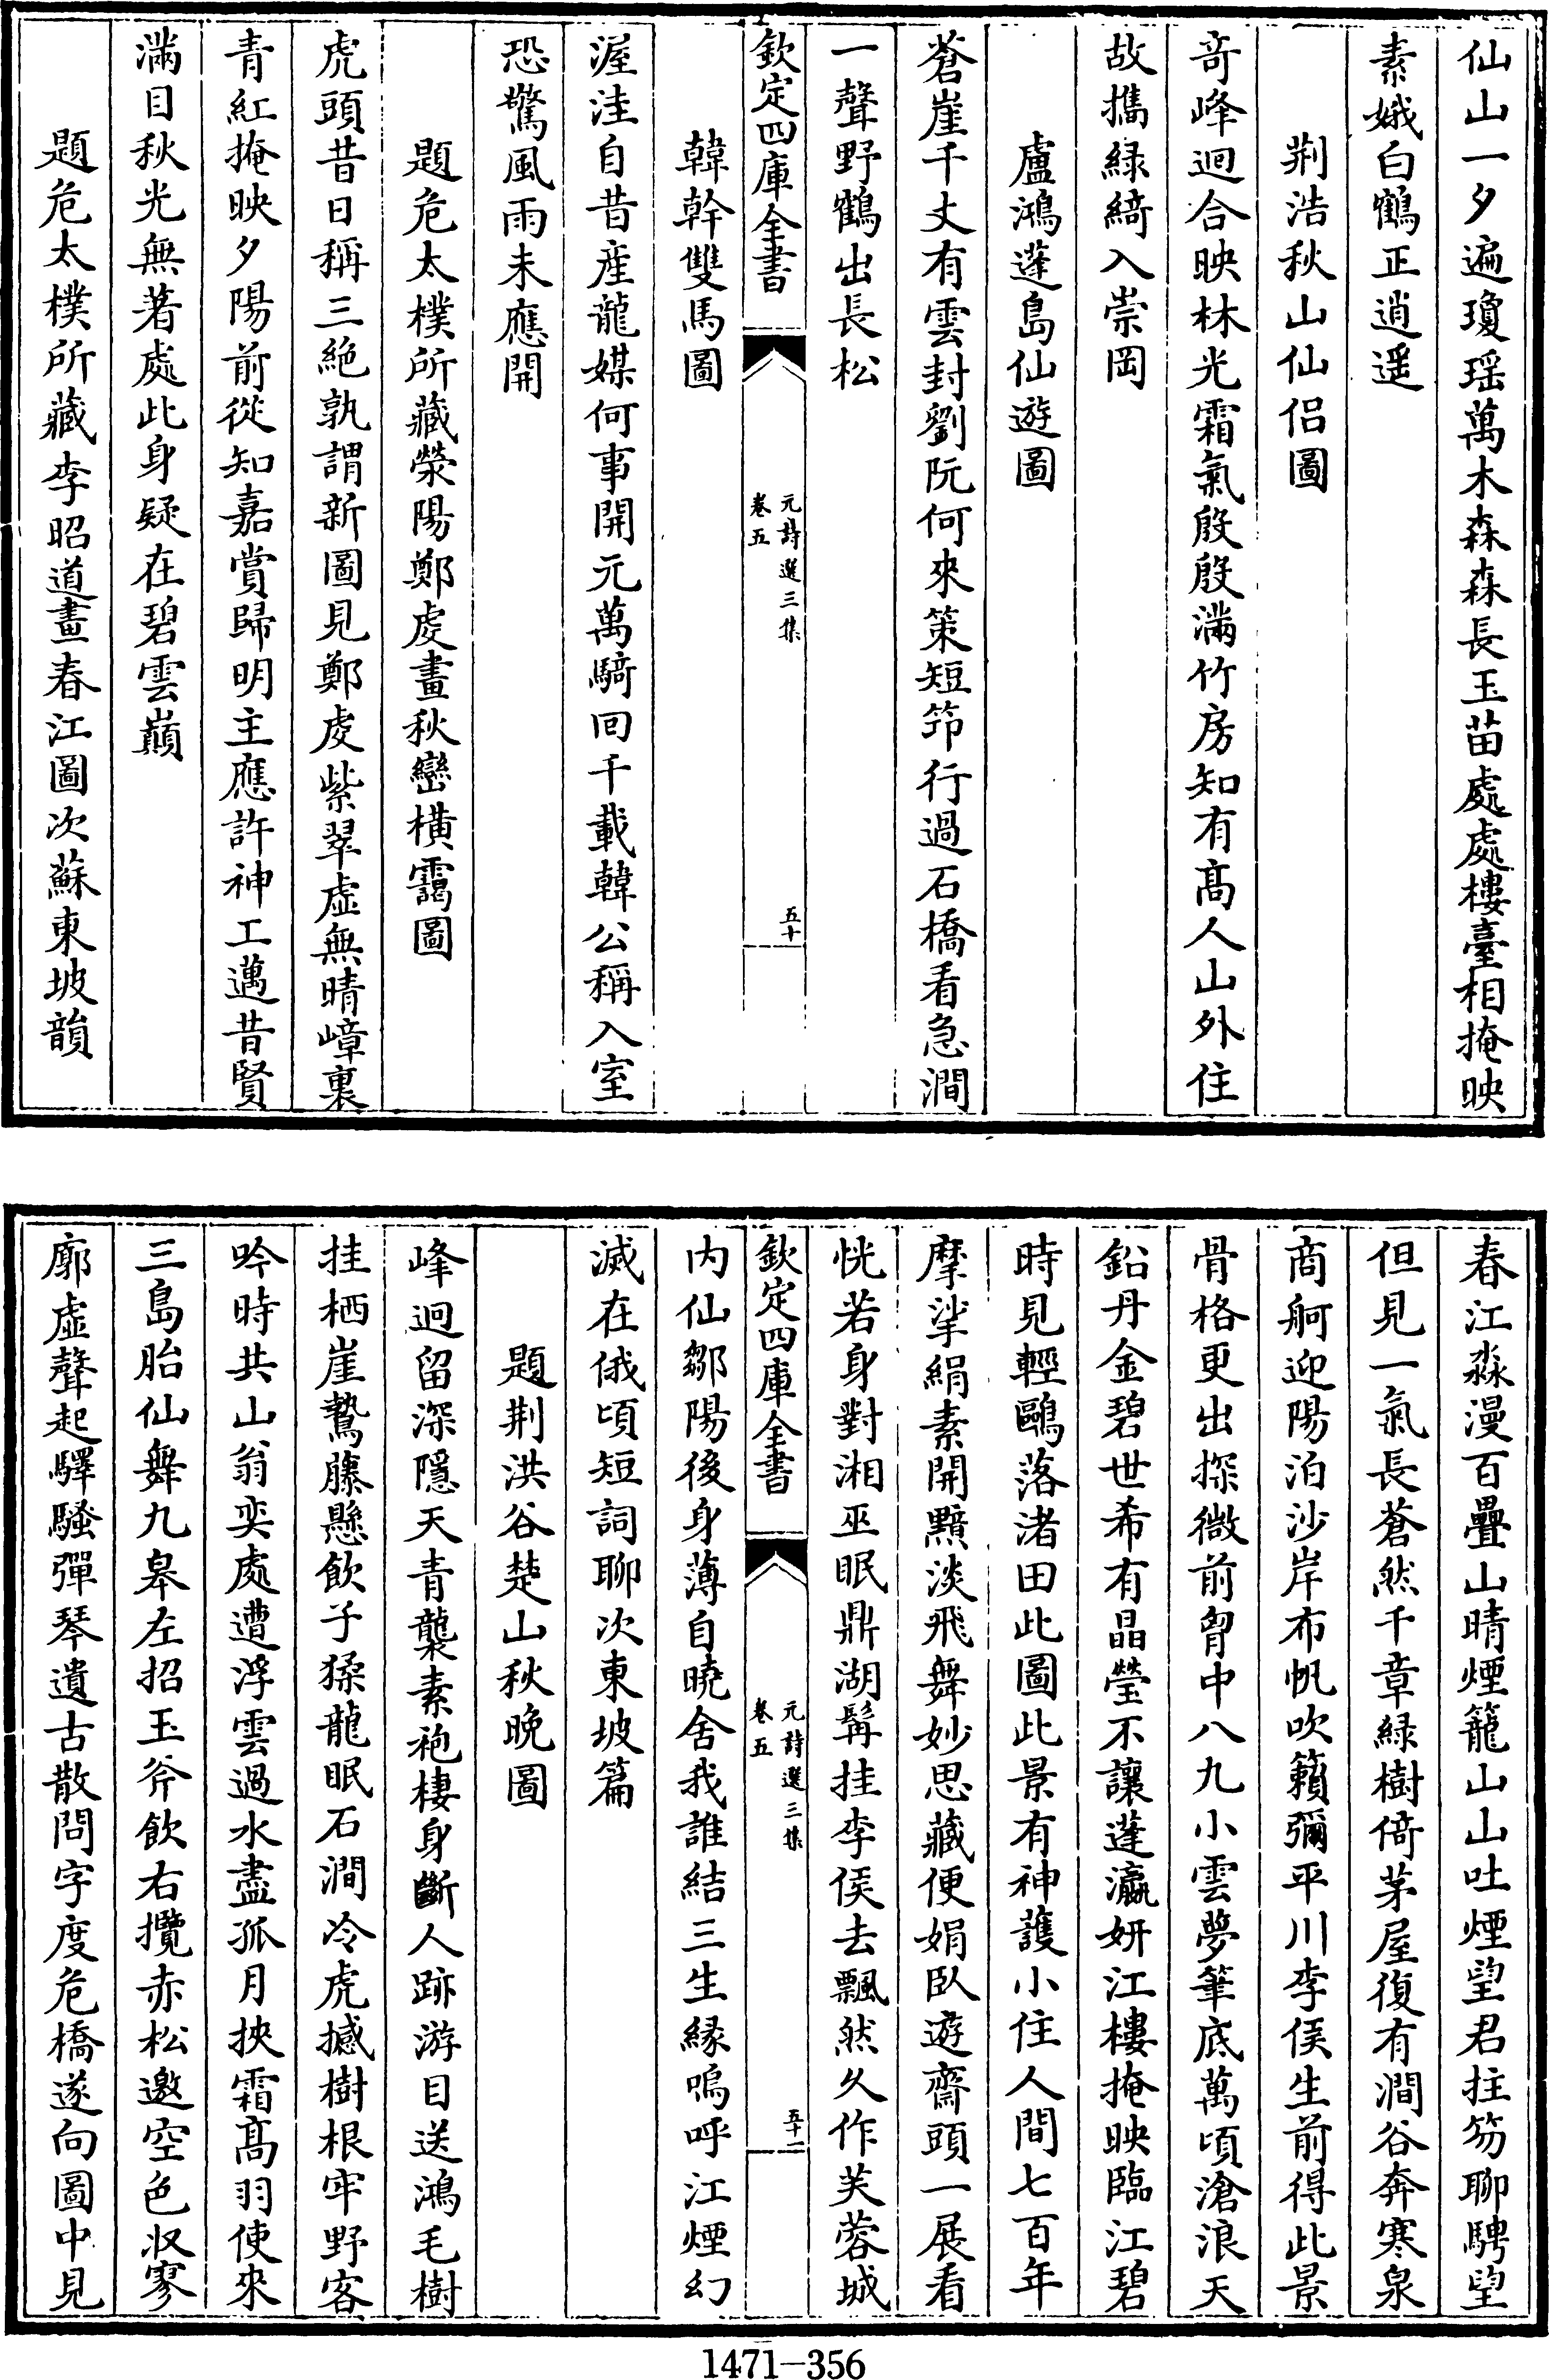 仙山一夕遍瓊瑶萬木森森長玉苗處處樓臺相掩映
素娥白鶴正逍遥
荆浩秋山仙侣圖
竒峰迴合映林光霜氣殷殷滿竹房知有髙人山外住
故攜緑綺入崇岡
盧鴻蓬島仙遊圖
蒼崖千丈有雲封劉阮何來策短笻行過石橋看急澗
一聲野鶴出長松
欽定四庫全書
元詩選三集
卷五
五十
韓幹雙馬圖
渥洼自昔産龍媒何事開元萬騎回千載韓公稱入室
恐驚風雨未應開
題危太樸所藏滎陽鄭虔畫秋巒横靄圖
虎頭昔日稱三絶孰謂新圖見鄭虔紫翠虚無晴嶂裏
青紅掩映夕陽前從知嘉賞歸明主應許神工邁昔賢
滿目秋光無著處此身疑在碧雲巔
題危太樸所藏李昭道畫春江圖次蘇東坡韻
春江淼漫百疊山晴煙籠山山吐煙望君拄笏聊騁望
但見一氣長蒼然千章緑樹倚茅屋復有澗谷奔寒泉
商舸迎陽泊沙岸布帆吹籟彌平川李侯生前得此景
骨格更出探微前胷中八九小雲夢筆底萬頃滄浪天
鉛丹金碧世希有晶瑩不讓蓬瀛妍江樓掩映臨江碧
時見輕鷗落渚田此圖此景有神護小住人間七百年
摩挲絹素開黯淡飛舞妙思藏便娟臥遊齋頭一展看
恍若身對湘巫眠鼎湖髯挂李侯去飄然久作芙蓉城
欽定四庫全書
元詩選三集
卷五
五十一
内仙鄒陽後身薄自曉舍我誰結三生緣嗚呼江煙幻
滅在俄頃短詞聊次東坡篇
題荆洪谷楚山秋晚圖
峰迴留深隱天青襲素袍棲身斷人跡游目送鴻毛樹
挂栖崖鷙藤懸飲子猱龍眠石澗冷虎撼樹根牢野客
吟時共山翁奕處遭浮雲過水盡孤月挾霜髙羽使來
三島胎仙舞九皋左招玉斧飲右攬赤松邀空色収寥
廓虚聲起驛騷彈琴遺古散問字度危橋遂向圖中見
1471—356